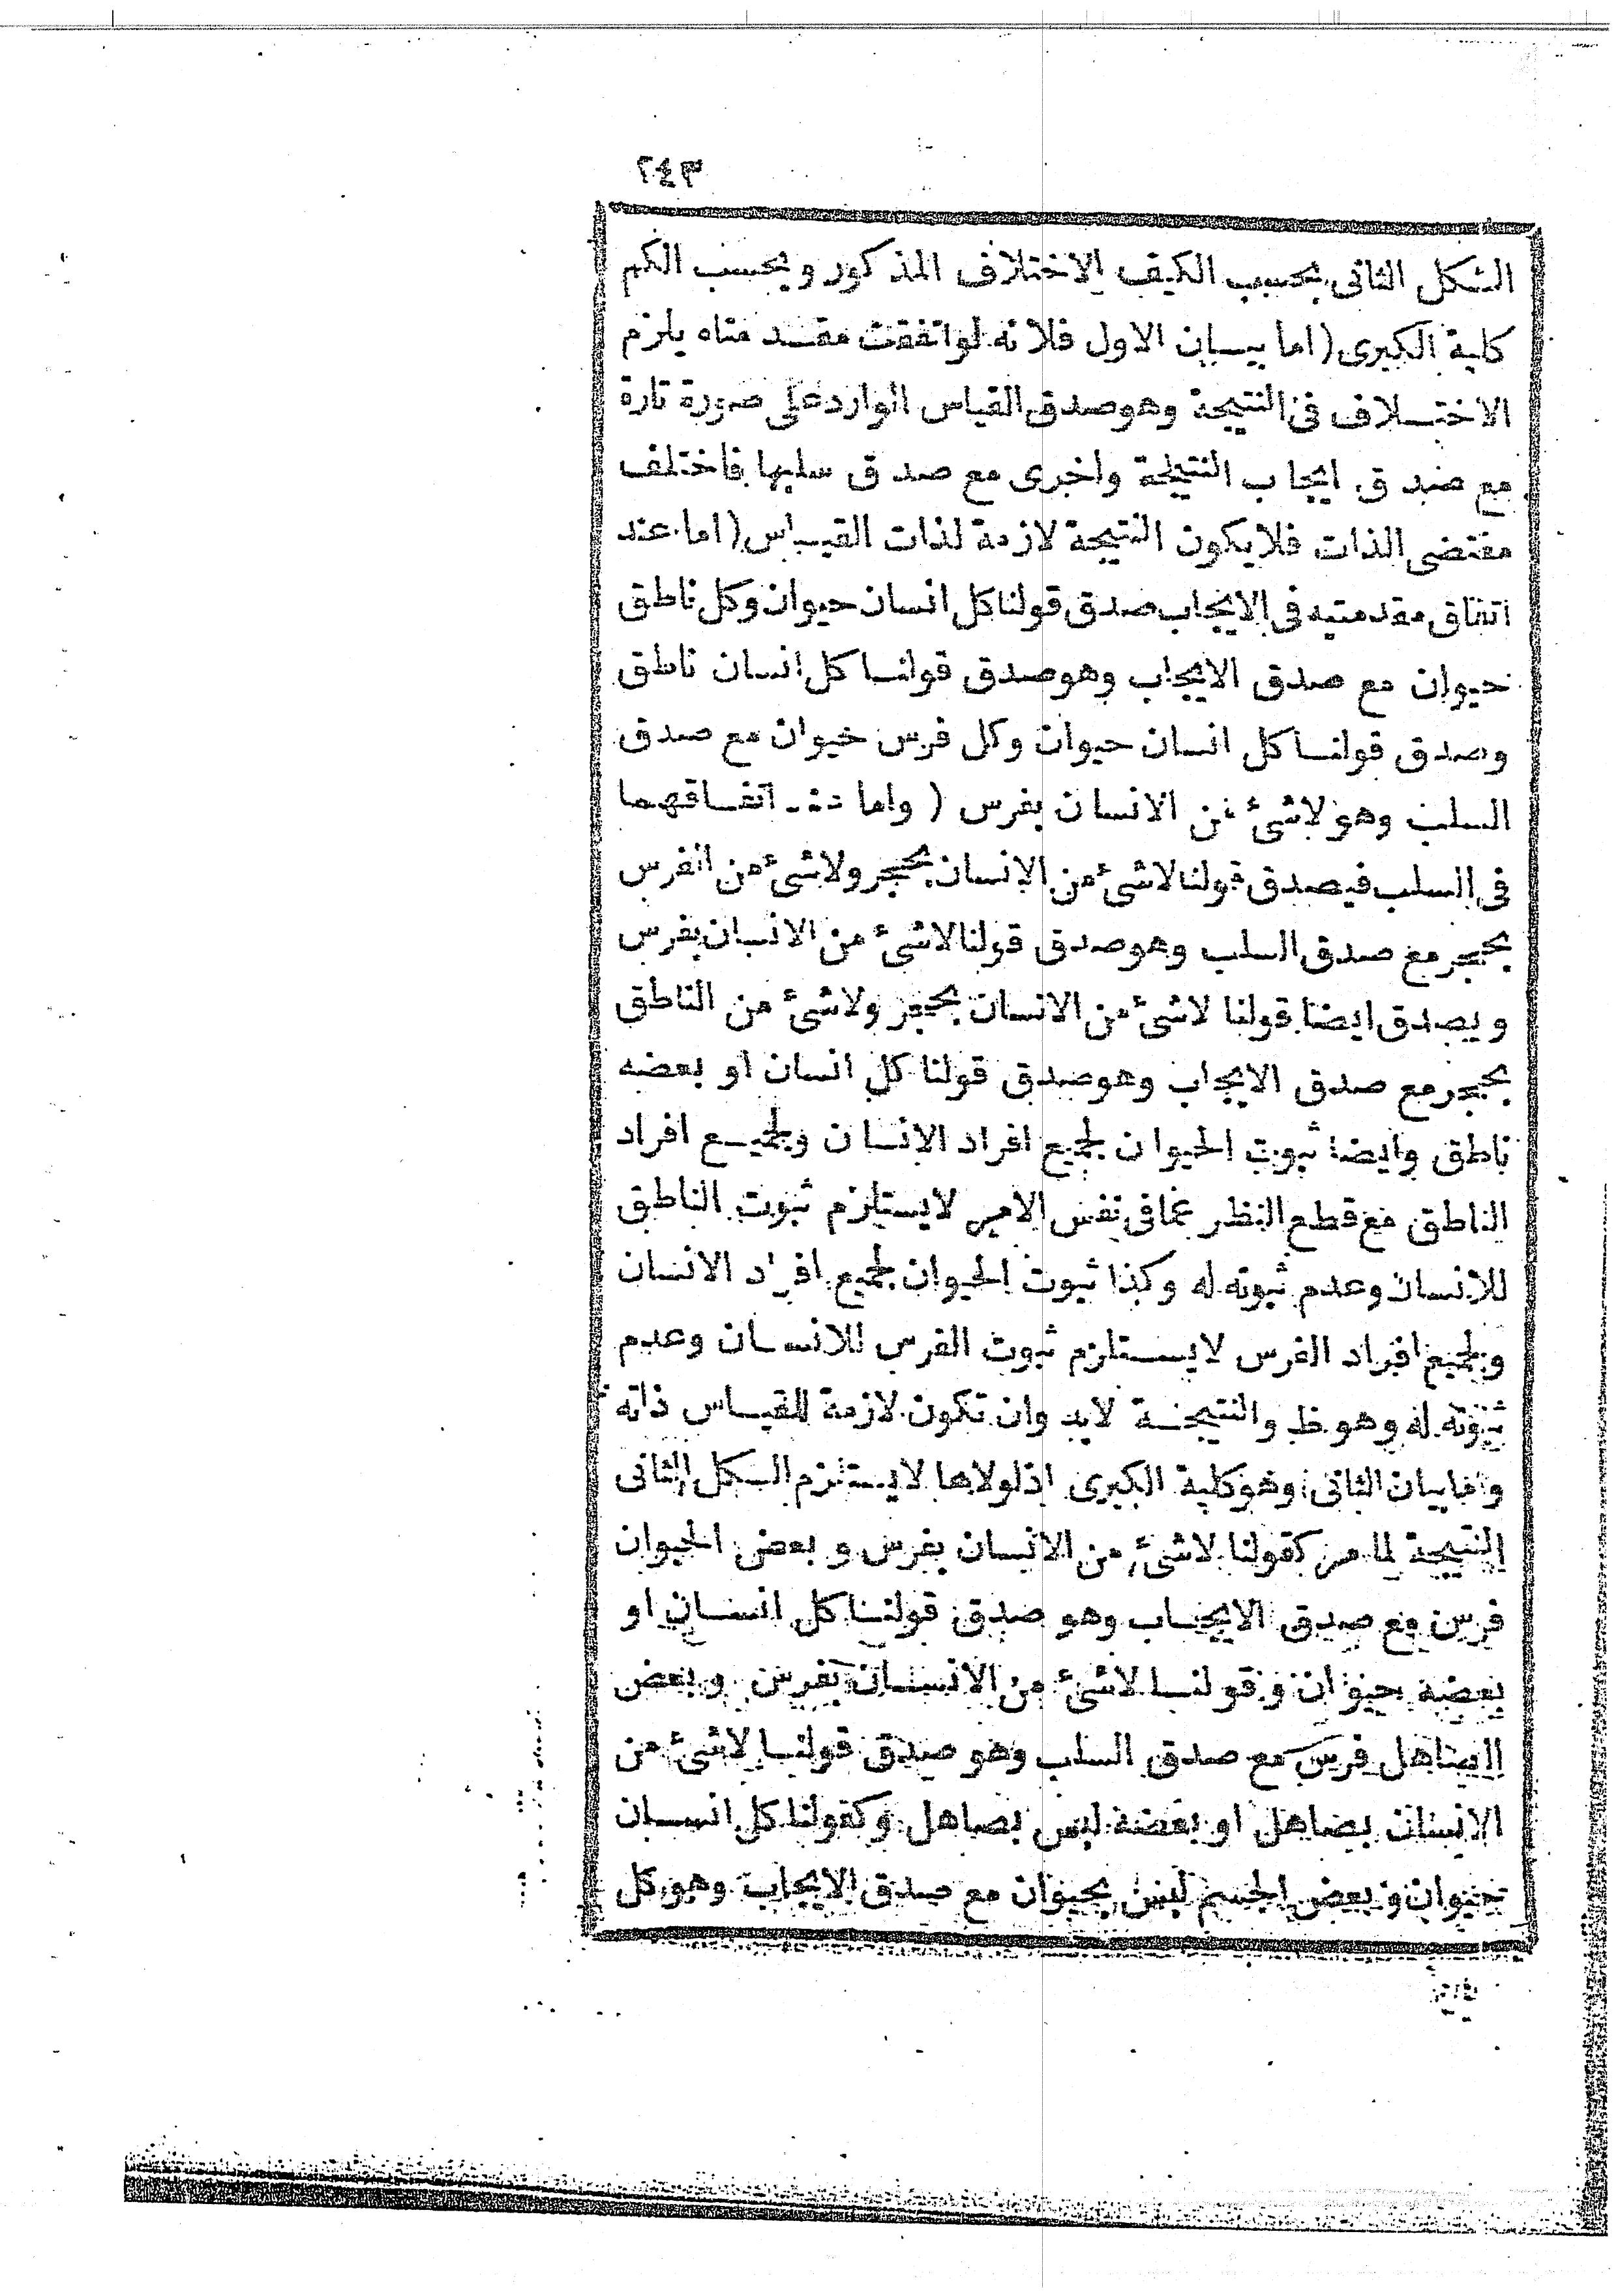 ٢٤٣
الشكل الثانى بحسب الكيف الاختلاف المذكور وبحسب الكم
كلية الكبرى (اما بيان الاول فلانه لو اتفقت مقدمتاه يلزم
الاختلاف فى النتيجة وهو صدق القياس الوارد على صورة تارة
مع صدق ايجاب النتيجة واخرى مع صدق سلبها فاختلف
مقتضى الذات فلا يكون النتيجة لازمة لذات القياس (اما عند
اتفاق مقدمتيه فى الايجاب صدق قولنا كل انسان حيوان وكل ناطق
حيوان مع صدق الايجاب وهو صدق قولنا كل انسان ناطق
وصدق قولنا كل انسان حيوان وكل فرس حيوان مع صدق
السلب وهو لاشئ من الانسان بفرس (واما اتفاقهما
فى السلب فيصدق قولنا لاشئ من الانسان بحجر ولاشئ من الفرس
بحجر مع صدق السلب وهو صدق قولنا لاشئ من الانسان بفرس
ويصدق ايضا قولنا لاشئ من الانسان بحجر ولاشئ من الناطق
بحجر مع صدق الايجاب وهو صدق قولنا كل انسان او بعضه
ناطق وايضا ثبوت الحيوان لجميع افراد الانسان ولجميع افراد
الناطق مع قطع النظر عما فى نفس الامر لايستلزم ثبوت الناطق
للانسان وعدم ثبوته له وكذا ثبوت الحيوان لجميع افراد الانسان
ولجميع افراد الفرس لايستلزم ثبوت الفرس للانسان وعدم
ثبوته له وهو ظ والنتيجة لابد وان تكون لازمة للقياس ذاته
واما بيان الثانى وهو كلية الكبرى اذ لولاها لايستلزم الشكل الثانى
النتيجة لما مر كقولنا لاشئ من الانسان بفرس وبعض الحيوان
فرس مع صدق الايجاب وهو صدق قولنا كل انسان او
بعضه حيوان وقولنا لاشئ من الانسان بفرس وبعض
الصاهل فرس مع صدق السلب وهو صدق قولنا لاشئ من
الانسان بصاهل او بعضه ليس بصاهل وكقولنا كل انسان
حيوان وبعض الجسم ليس بحيوان مع صدق الايجاب وهو كل